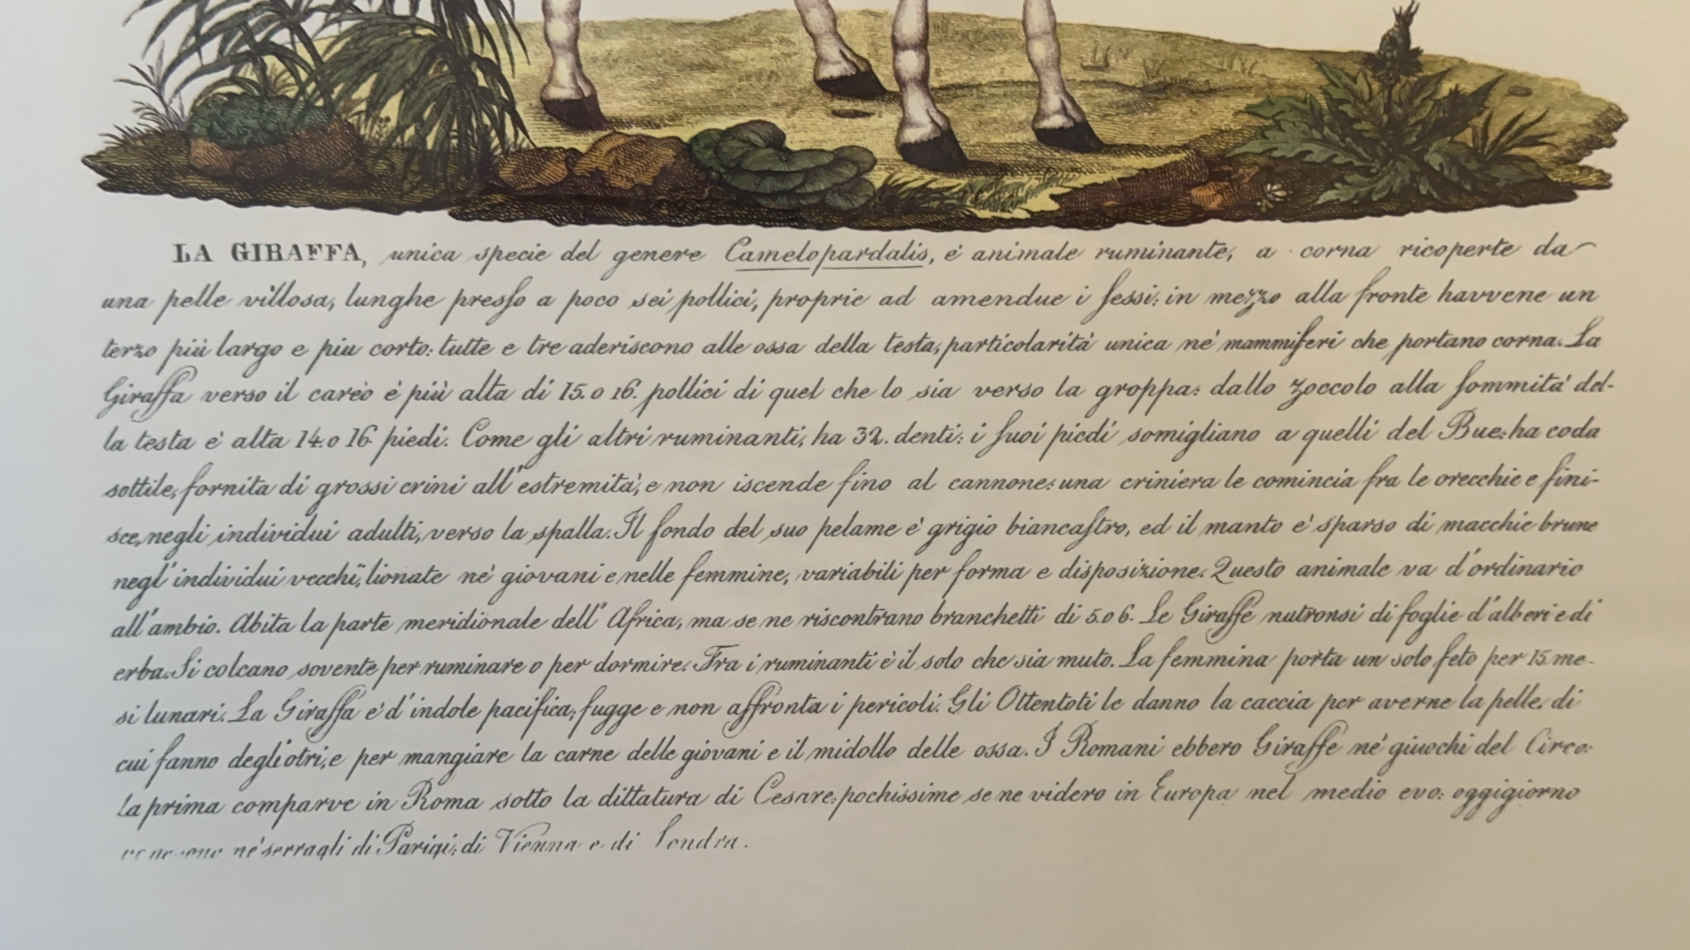 LA GIRAFFA, unica specie del genere Camelopardalis, é animale ruminante, a corna ricoperte da
una pelle villosa, lunghe presso a poco sei pollici, proprie ad amendue i sessi: in mezzo alla fronte havvene un
terzo più largo e piu corto: tutte e tre aderiscono alle ossa della testa, particolarità unica né mammiferi che portano corna. La
Giraffa verso il careò è più alta di 15. o 16. pollici di quel che lo sia verso la groppa: dallo zoccolo alla sommità del-
la testa é alta 14. o 16 piedi. Come gli altri ruminanti, ha 32. denti: i suoi piedi somigliano a quelli del Bue: ha coda
sottile, fornita di grossi crini all'estremità, e non iscende fino al cannone: una criniera le comincia fra le orecchie e fini-
sce, negli individui adulti, verso la spalla. Il fondo del suo pelame é grigio biancastro, ed il manto é sparso di macchie brune
negl'individui vecchi, lionate né giovani e nelle femmine, variabili per forma e disposizione. Questo animale va d'ordinario
all'ambio. Abita la parte meridionale dell'Africa, ma se ne riscontrano branchetti di 5. o 6. Le Giraffe nutronsi di foglie d'alberi e di
erba. Si colcano sovente per ruminare o per dormire. Fra i ruminanti é il solo che sia muto. La femmina porta un solo feto per 15 me-
si lunari. La Giraffa é d'indole pacifica, fugge e non affronta i pericoli. Gli Ottentoti le danno la caccia per averne la pelle, di
cui fanno degli otri, e per mangiare la carne delle giovani e il midollo delle ossa. I Romani ebbero Giraffe né giuochi del Circo:
la prima comparve in Roma sotto la dittatura di Cesare: pochissime se ne videro in Europa nel medio evo: oggigiorno
né serragli di Parigi, di Vienna e di Londra.